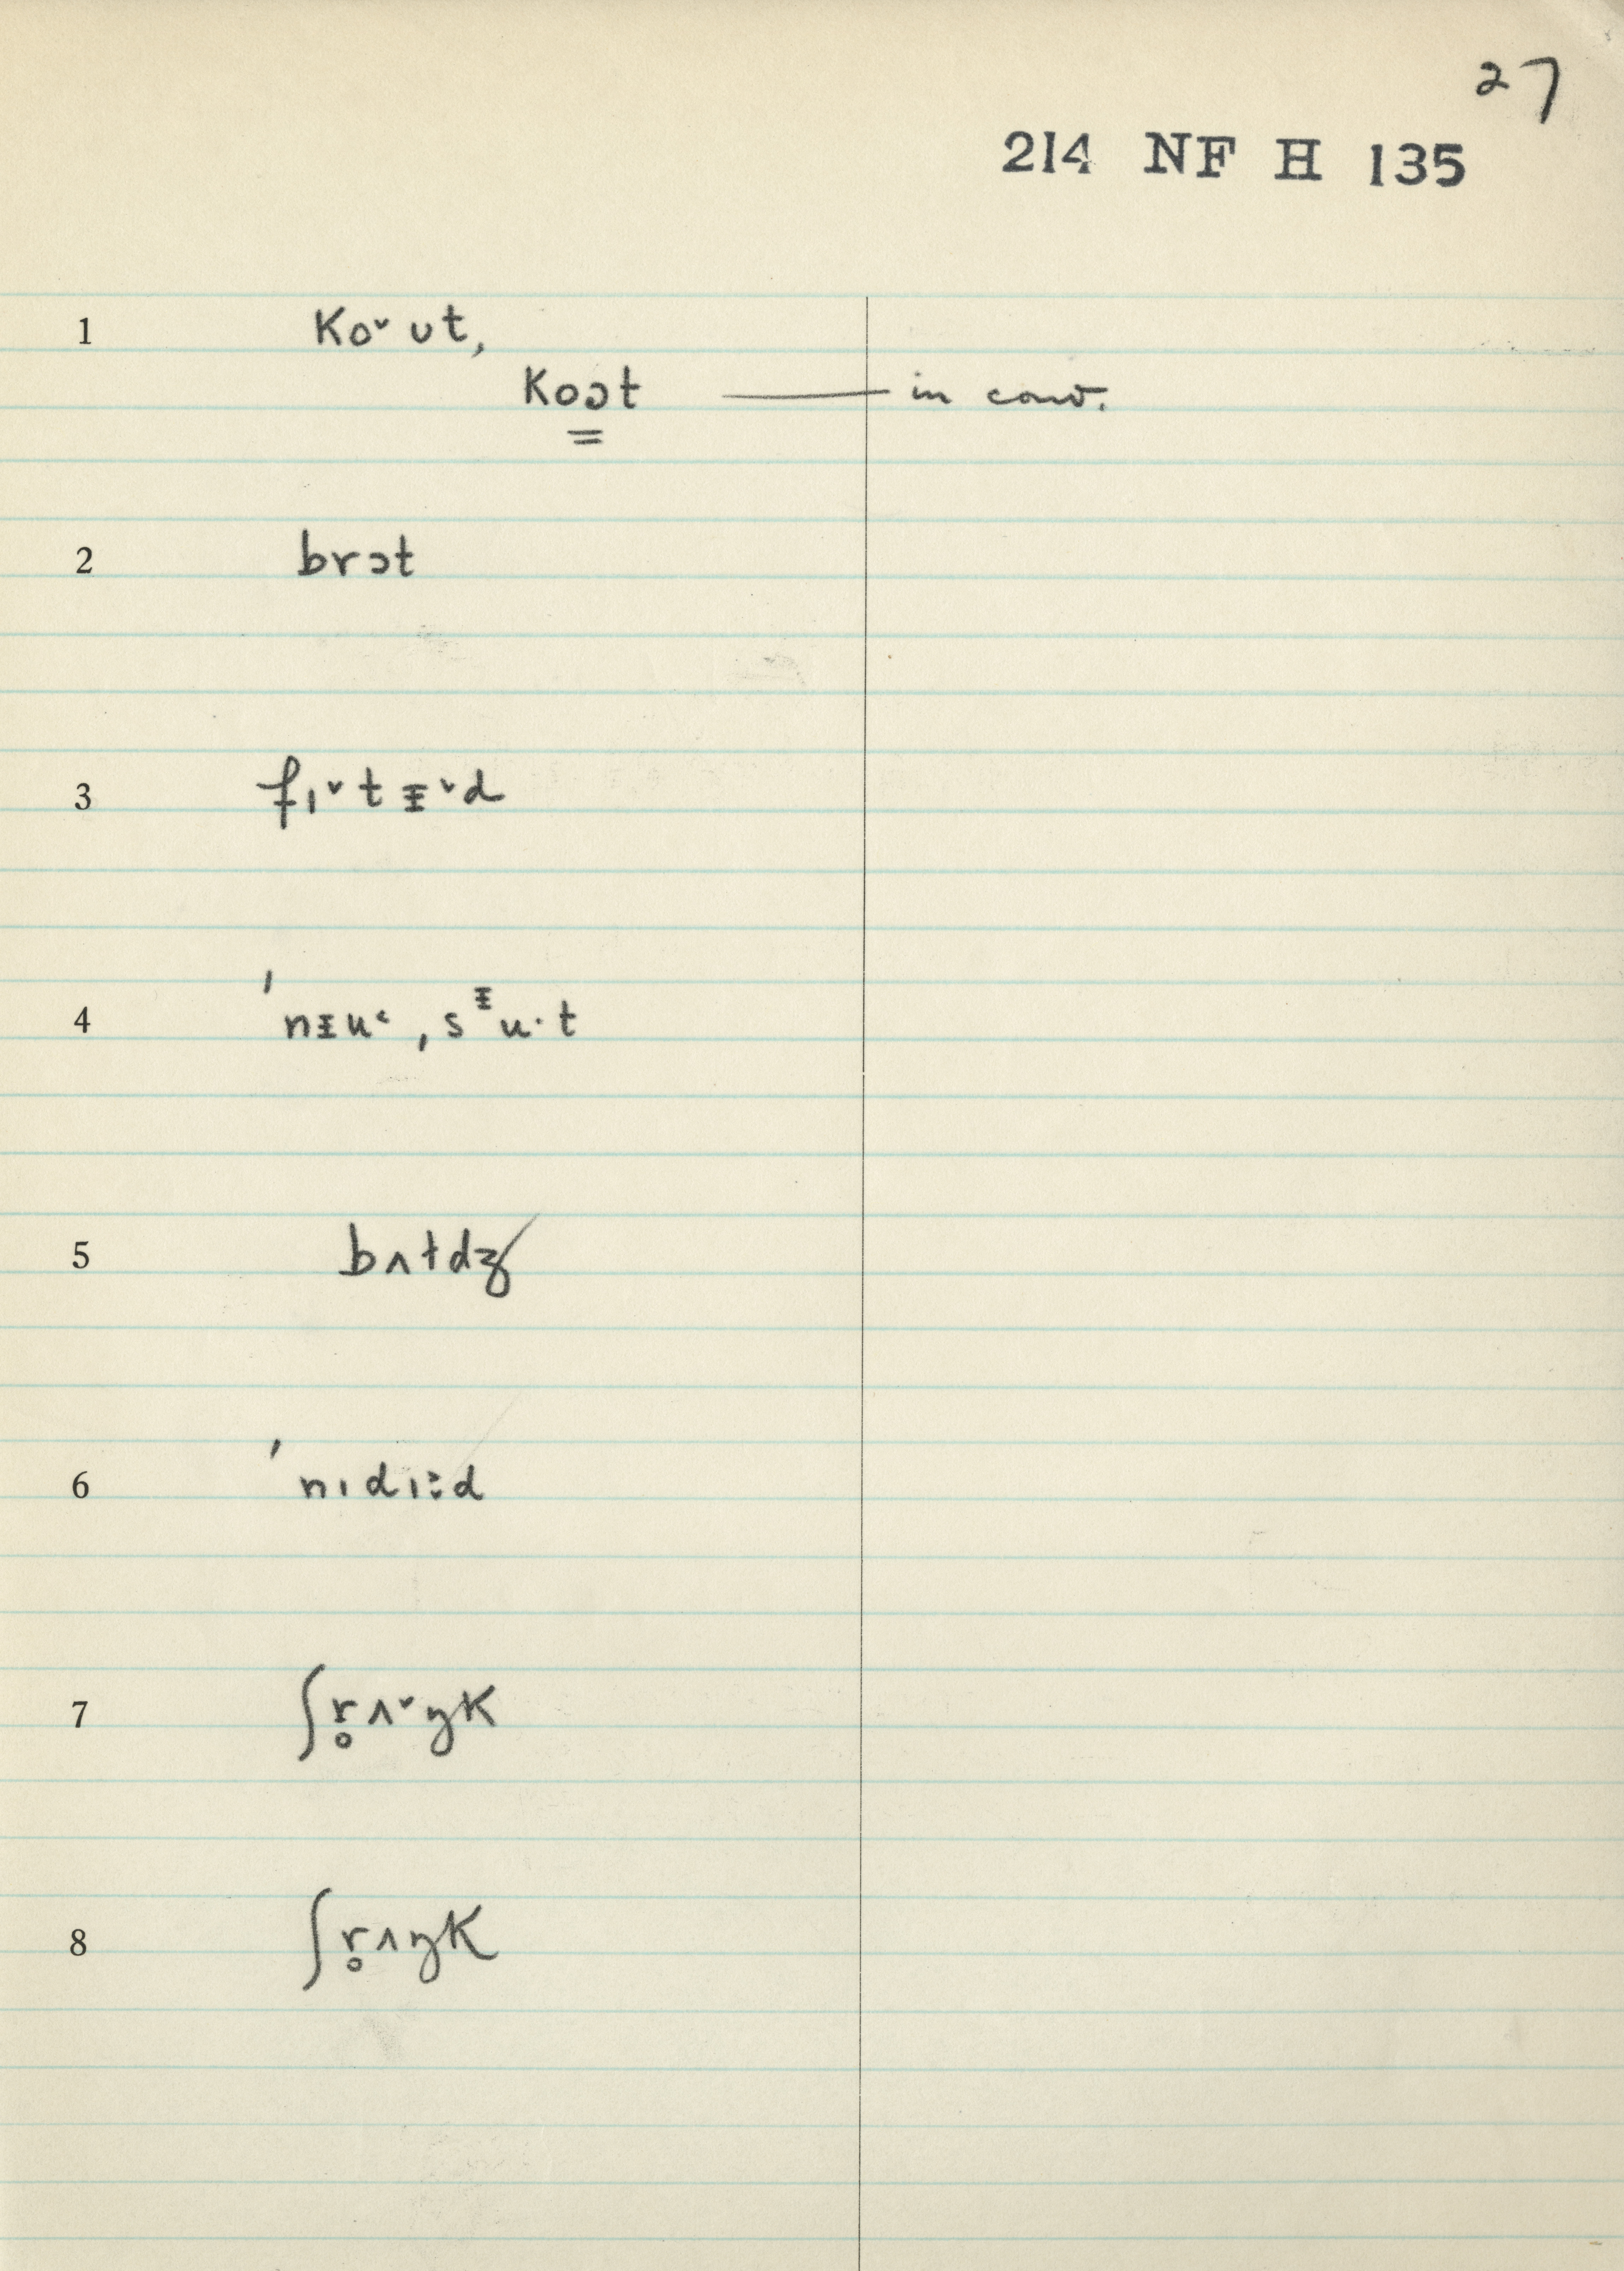 27
214 NF H 135
1 Ko˅ ʊt,
Koɔt — in conv.
2 brɔt
3 fɪ˅tᵻ˅d
4 ˈnᵻu˂, sᵻu·t
5 bʌɫdʒ
6 ˈnɪdɪ:d
7 ʃr̥ʌ˅ŋK
8 ʃr̥ʌŋK